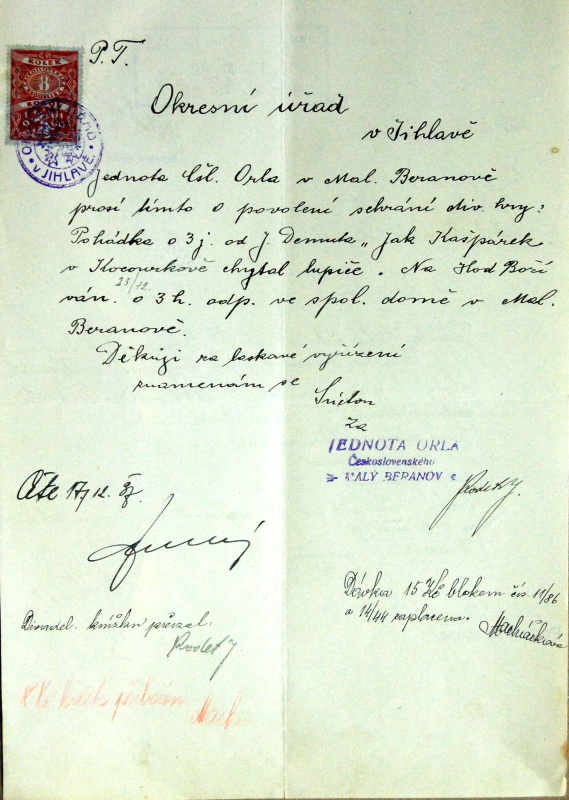 P. T.
KOLEK
8
V JIHLAVĚ
Okresní úřad
v Jihlavě
Jednota Čsl. Orla v Mal. Beranově
prosí tímto o povolení sehrání div. hry:
Pohádka o 3 j. od J. Demuta „Jak Kašpárek
v Kocourkově chytal lupiče. Na Hod Boží
25/12
ván. o 3 h. odp. ve spol. domě v Mal.
Beranově.
Děkuji za laskavé vyřízení
znamenám se
Za
JEDNOTA ORLA
Československého
MALÝ BERANOV
17/12.
Dávka 15 Kč blokem čís. 11/86
a 14/44 zaplacena.
Macháčková
Divadel. knížku převzal:
8 Kč kolek přiložen.